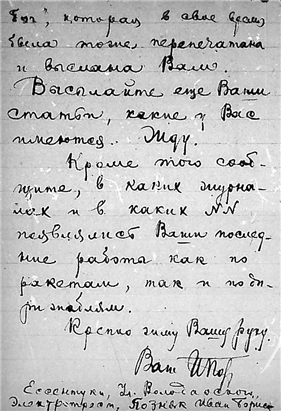 которая в свое время
была тоже перепечатана
и выслана Вам.
Высылайте еще Ваши
статьи, какие у Вас
имеются. Жду.
Кроме того сооб-
щите, в каких журна-
лах и в каких NN
появились Ваши послед-
ние работы как по
ракетам, так и по ди-
рижаблям.
Крепко жму Вашу руку.
Ваш
Ессентуки, Ул. Володарского,
Электротрест, Иван